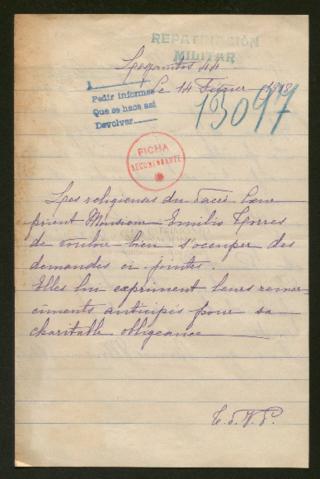 REPATRIACIÓN
MILITAR
Leganitos 44
Le 14 Février 1918
1
Pedir informes
Que se haga así
Devolver
13097
FICHA
RECOMENDANTE
Les religieuses du Sacré Cœur
prient Monsieur Emilio Torres
de vouloir bien s'occuper des
demandes ci jointes.
Elles lui expriment leurs remer-
ciments anticipés pour sa
charitable obligeance